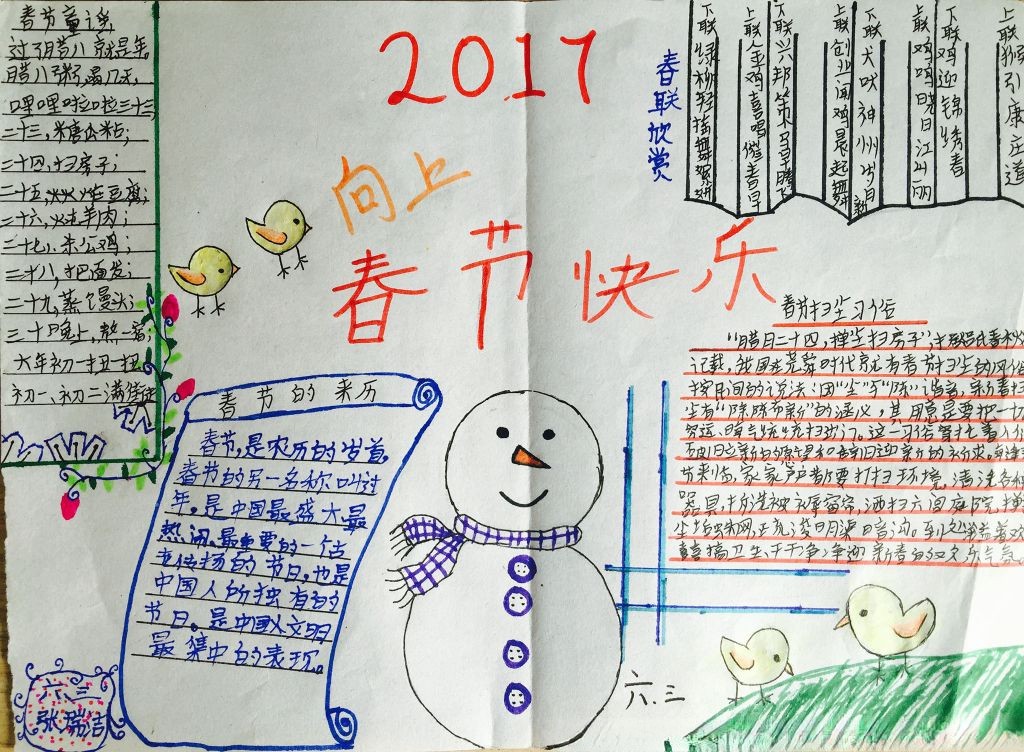 春节童谣
过了腊八就是年
腊八粥,喝几天,
哩哩啦啦二十三
二十三,糖瓜粘;
二十四,扫房子;
二十五,
二十六,羊肉;
二十七,公鸡;
二十八,把面发;
二十九,蒸馒头;
三十晚上,熬一宿;
大年初一扭一扭
初一、初二满街走
2017
向上
春节快乐
春联欣赏
上联猴引康庄道
下联鸡迎锦绣春
上联鸡鸣晓日江山丽
下联犬吠神州岁月新
上联创业闻鸡晨起舞
下联兴邦策马早腾飞
上联金鸡喜唱催春早
下联绿柳轻摇舞絮妍
春节的来历
春节,是农历的岁首,
春节的另一名称叫过
年。是中国最盛大最
热闹、最重要的一个古
老传扬的节日,也是
中国人所独有的
节日。是中国人文明
最集中的表现。
春节扫尘习俗
“腊月二十四,掸尘扫房子”,
记载,我国在尧舜时代就有春节扫尘的风俗
按民间的说法:因“尘”与“陈”谐音,新春扫
尘有“除陈布新”的涵义,其用意是要把一切
穷运、晦气统统扫出门。这一习俗寄托着人们
破旧立新的愿望和辞旧迎新的祈求。
节来临,家家户户都要打扫环境,清洗各种
器具,拆洗被褥窗帘,洒扫六闾庭院,掸
尘垢蛛网,疏浚明渠暗沟。到处
喜搞卫生、干干净净迎新春的欢乐气氛。
六.三
六.三
张瑞洁